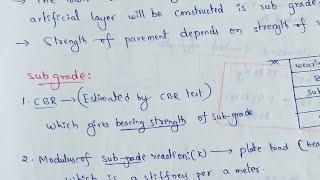 artificial layer will be constructed is sub grade
→ Strength of pavement depends on strength of s
wearin
B
Sub
Sub grade:
1. CBR → (Estimated by CBR test)
which gives bearing strength of sub-grade
2. Modulus of sub-grade reaction:(K) → plate load (bea
which is a stiffney per a meter.